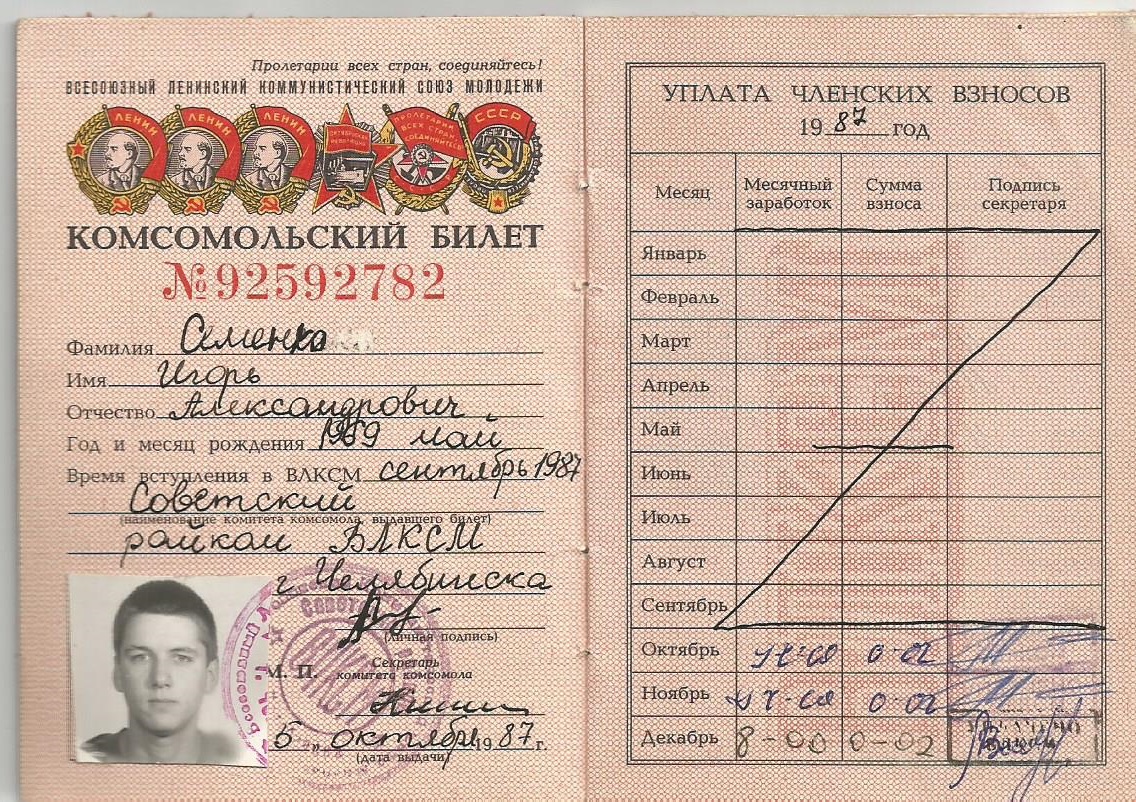 Пролетарии всех стран, соединяйтесь!
ВСЕСОЮЗНЫЙ ЛЕНИНСКИЙ КОММУНИСТИЧЕСКИЙ СОЮЗ МОЛОДЕЖИ
ЛЕНИН ЛЕНИН ЛЕНИН ОКТЯБРЬСКАЯ РЕВОЛЮЦИЯ ПРОЛЕТАРИИ ВСЕХ СТРАН СОЕДИНЯЙТЕСЬ СССР
КОМСОМОЛЬСКИЙ БИЛЕТ
№92592782
Фамилия Семенко
Имя Игорь
Отчество Александрович
Год и месяц рождения 1969 май
Время вступления в ВЛКСМ сентябрь 1987
Советский
(наименование комитета комсомола, выдавшего билет)
райком ВЛКСМ
г. Челябинска
(личная подпись)
М. П. Секретарь
комитета комсомола
"5" октября 1987 г.
(дата выдачи)
УПЛАТА ЧЛЕНСКИХ ВЗНОСОВ
1987 год
Месяц Месячный заработок Сумма взноса Подпись секретаря
Январь
Февраль
Март
Апрель
Май
Июнь
Июль
Август
Сентябрь
Октябрь 0-02
Ноябрь 0-02
Декабрь 8-00 0-02